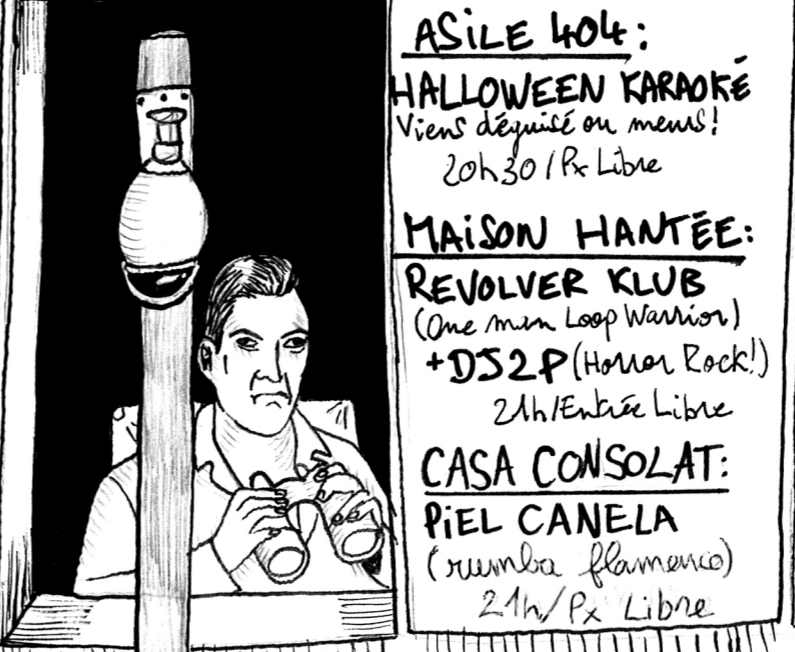 ASILE 404:
HALLOWEEN KARAOKÉ
Viens déguisé ou meurs!
20h30 / Px Libre
MAISON HANTÉE:
REVOLVER KLUB
(One man Loop Warrior)
+ DJ 2P (Horror Rock!)
21h/Entrée Libre
CASA CONSOLAT:
PIEL CANELA
(rumba flamenco)
21h/Px Libre